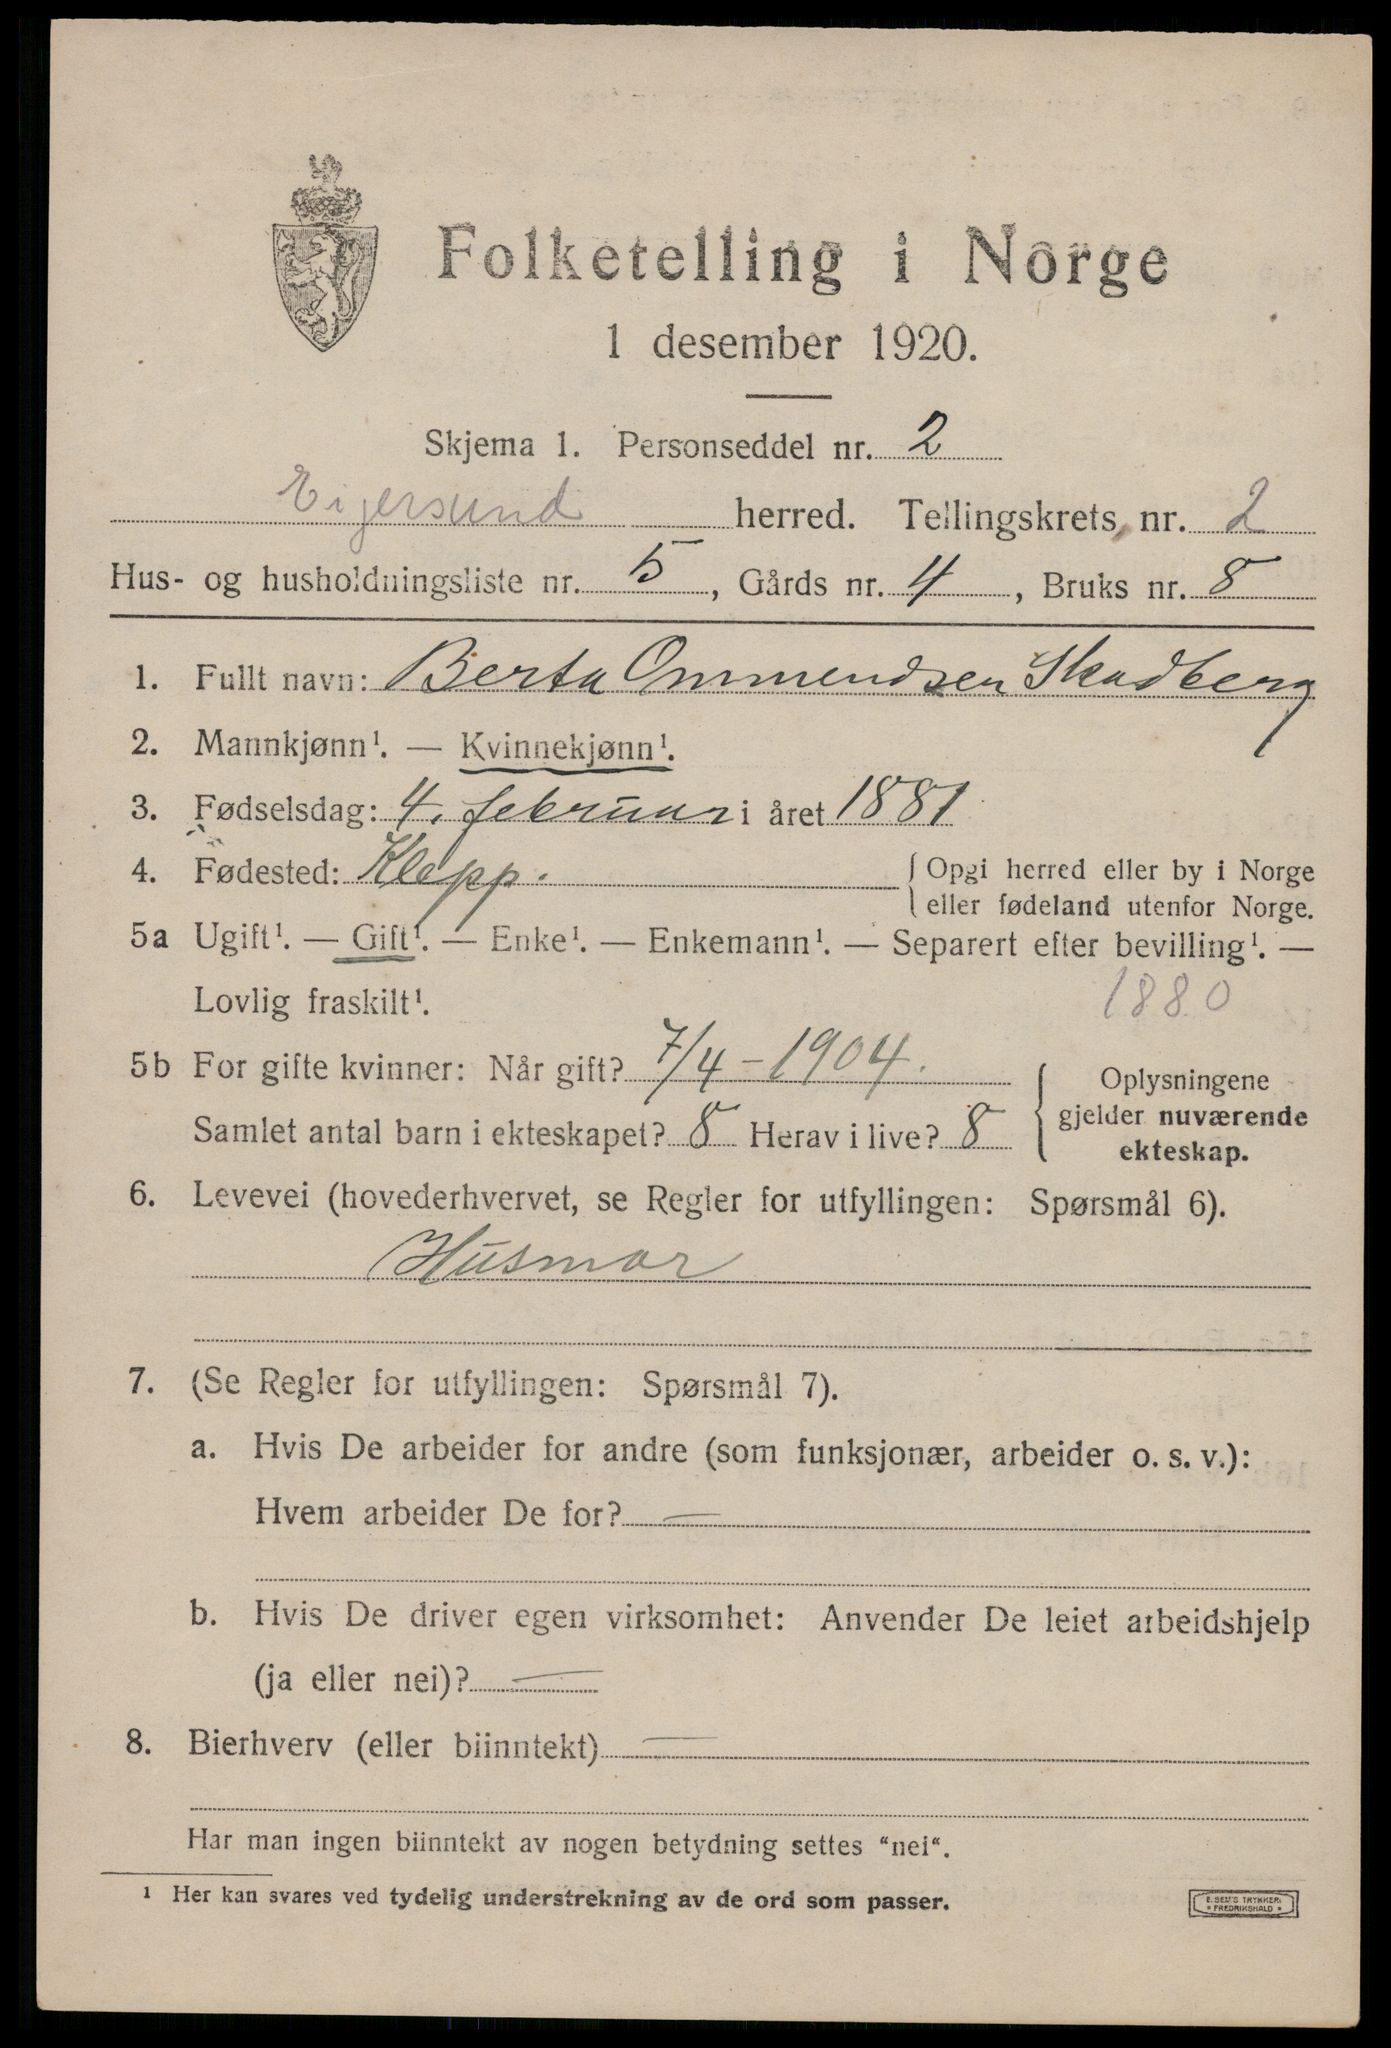 Folketelling i Norge
1 desember 1920.
Skjema 1. Personseddel nr. 2
Eigersund herred. Tellingskrets nr. 2
Hus- og husholdningsliste nr. 5, Gårds nr. 4, Bruks nr. 8
1. Fullt navn: Berta Ommendsen Skadberg
2. Mannkjønn¹. — Kvinnekjønn¹.
3. Fødselsdag: 4. februar i året 1881
4. Fødested: Klepp. { Opgi herred eller by i Norge
eller fødeland utenfor Norge.
5a Ugift¹. — Gift¹. — Enke¹. — Enkemann¹. — Separert efter bevilling¹. —
Lovlig fraskilt¹. 1880
5b For gifte kvinner: Når gift? 7/4 - 1904. { Oplysningene
gjelder nuværende
Samlet antal barn i ekteskapet? 8 Herav i live? 8
ekteskap.
6. Levevei (hovederhvervet, se Regler for utfyllingen: Spørsmål 6).
Husmor
7. (Se Regler for utfyllingen: Spørsmål 7).
a. Hvis De arbeider for andre (som funksjonær, arbeider o. s. v.):
Hvem arbeider De for? —
b. Hvis De driver egen virksomhet: Anvender De leiet arbeidshjelp
(ja eller nei)? —
8. Bierhverv (eller biinntekt) —
Har man ingen biinntekt av nogen betydning settes “nei“.
¹ Her kan svares ved tydelig understrekning av de ord som passer.
E. SEM'S TRYKKERI
* FREDRIKSHALD *